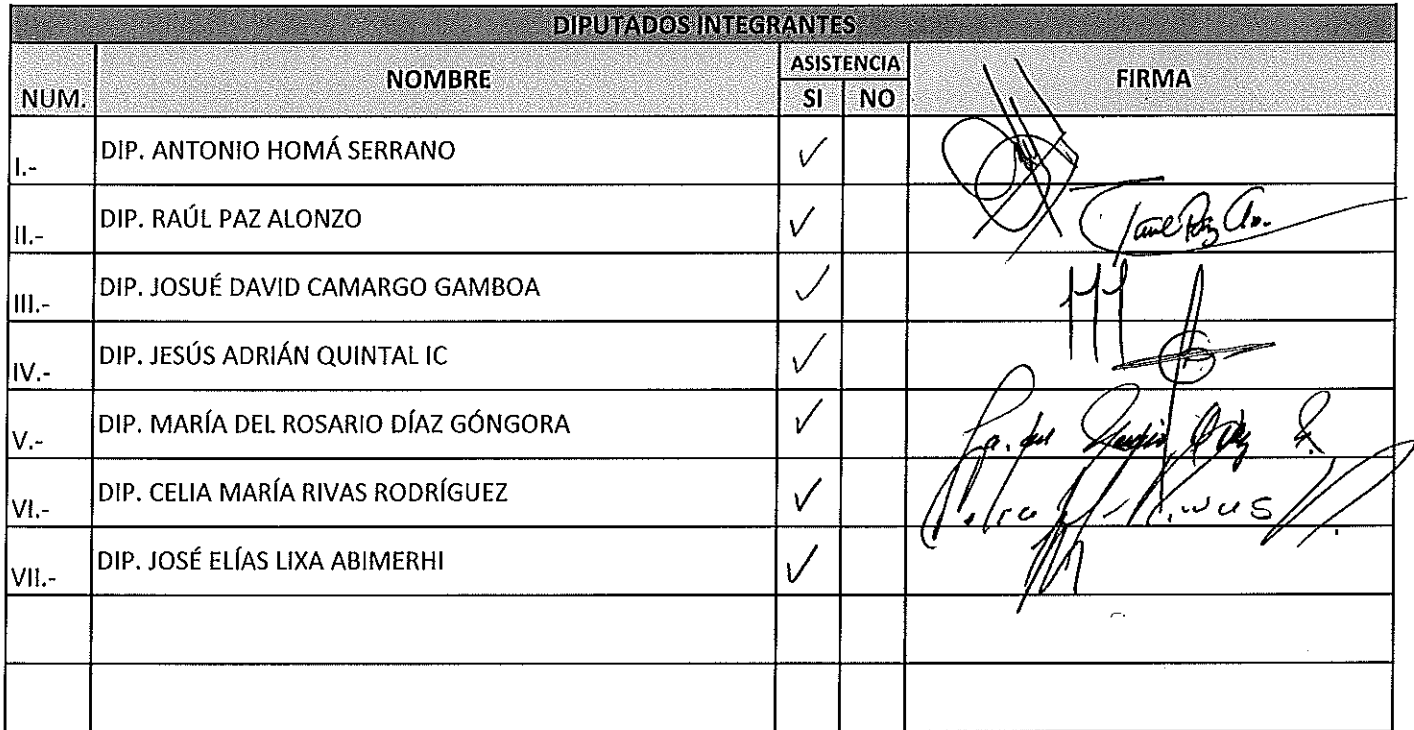 DIPUTADOS INTEGRANTES
NUM. NOMBRE ASISTENCIA FIRMA
SI NO
I.- DIP. ANTONIO HOMÁ SERRANO ✓
II.- DIP. RAÚL PAZ ALONZO ✓
III.- DIP. JOSUÉ DAVID CAMARGO GAMBOA ✓
IV.- DIP. JESÚS ADRIÁN QUINTAL IC ✓
V.- DIP. MARÍA DEL ROSARIO DÍAZ GÓNGORA ✓
VI.- DIP. CELIA MARÍA RIVAS RODRÍGUEZ ✓
VII.- DIP. JOSÉ ELÍAS LIXA ABIMERHI ✓